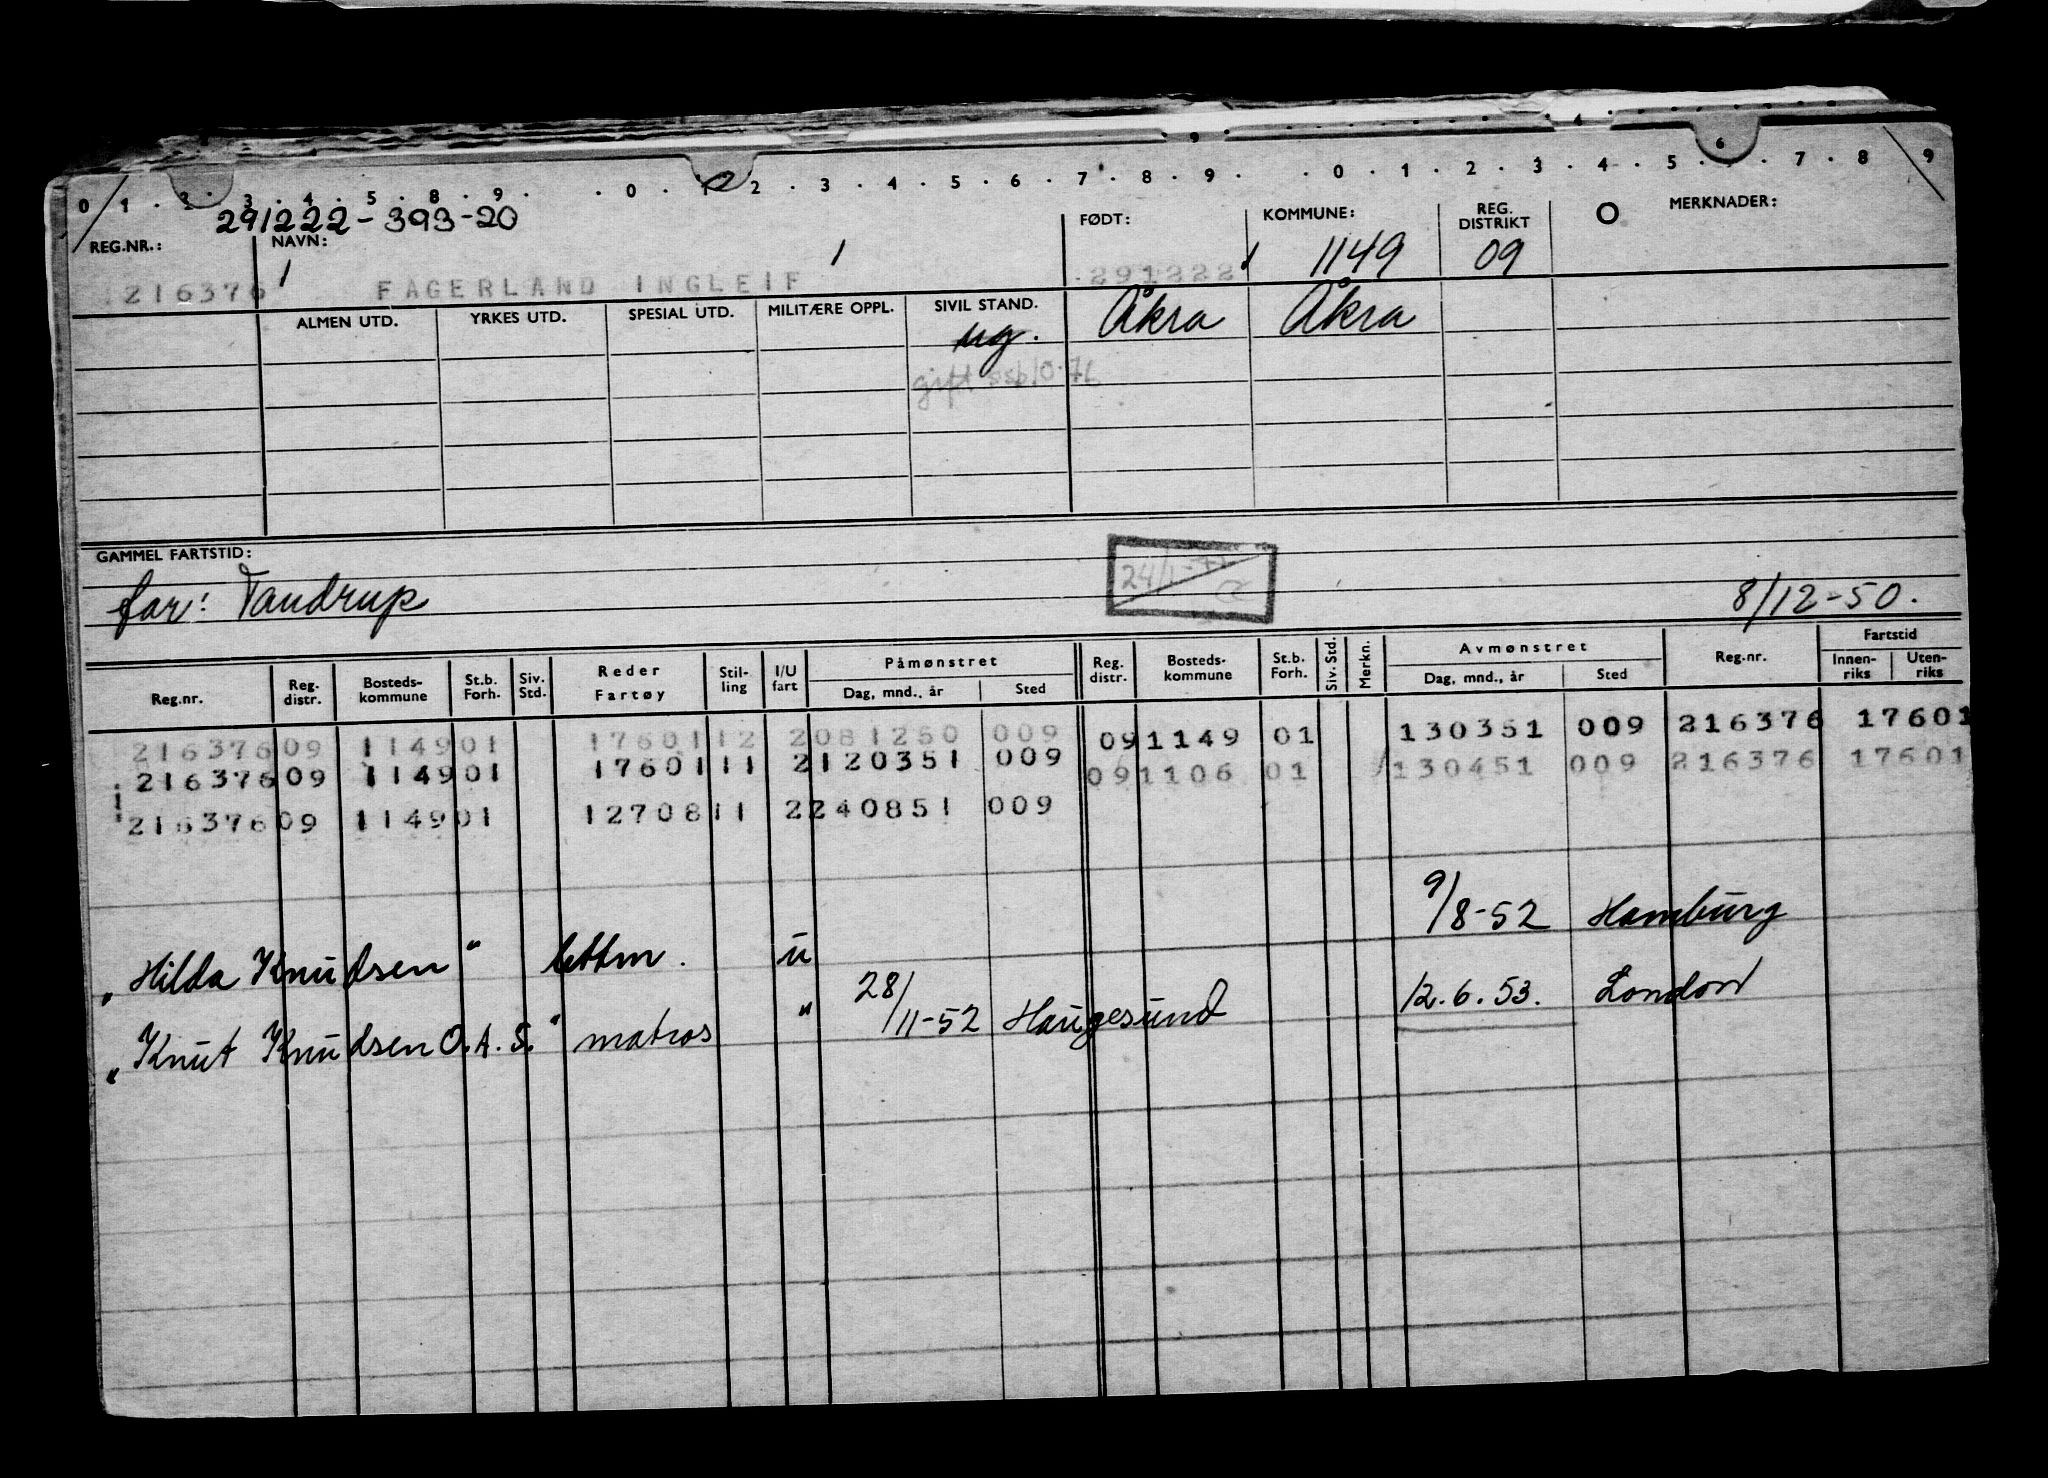 0 1 . 2 . 3 . 4 . 5 . 8 . 9 . . 0 . 1 . 2 . 3 . 4 . 5 . 6 . 7 . 8 . 9 . . 0 . 1 . 2 . 3 . 4 . 5 . 6 . 7 . 8 . 9
291222-393-20
REG.NR.: NAVN: FØDT: KOMMUNE: REG. DISTRIKT O MERKNADER:
216376 FAGERLAND INGLEIF 291222 1149 09
ALMEN UTD. YRKES UTD. SPESIAL UTD. MILITÆRE OPPL. SIVIL STAND. Åkra Åkra
ug.
gift
GAMMEL FARTSTID:
far: Tandrup 8/12-50.
Reg.nr. Reg. distr. Bostedskommune St.b. Forh. Siv. Std. Reder Fartøy Stilling I/U fart Påmønstret Dag, mnd., år Sted Reg. distr. Bostedskommune St.b. Forh. Siv. Std. Merkn. Avmønstret Dag, mnd., år Sted Reg.nr. Fartstid Innenriks Utenriks
216376 09 1149 01 17601 12 2 081250 009 09 1149 01 130351 009 216376 17601
216376 09 1149 01 17601 11 2 120351 009 09 1106 01 130451 009 216376 17601
216376 09 1149 01 12708 11 2 240851 009
9/8-52 Hamburg
"Hilda Knudsen" lettm. u
"Knut Knudsen O.A.S." matros " 28/11-52 Haugesund 12.6.53. London